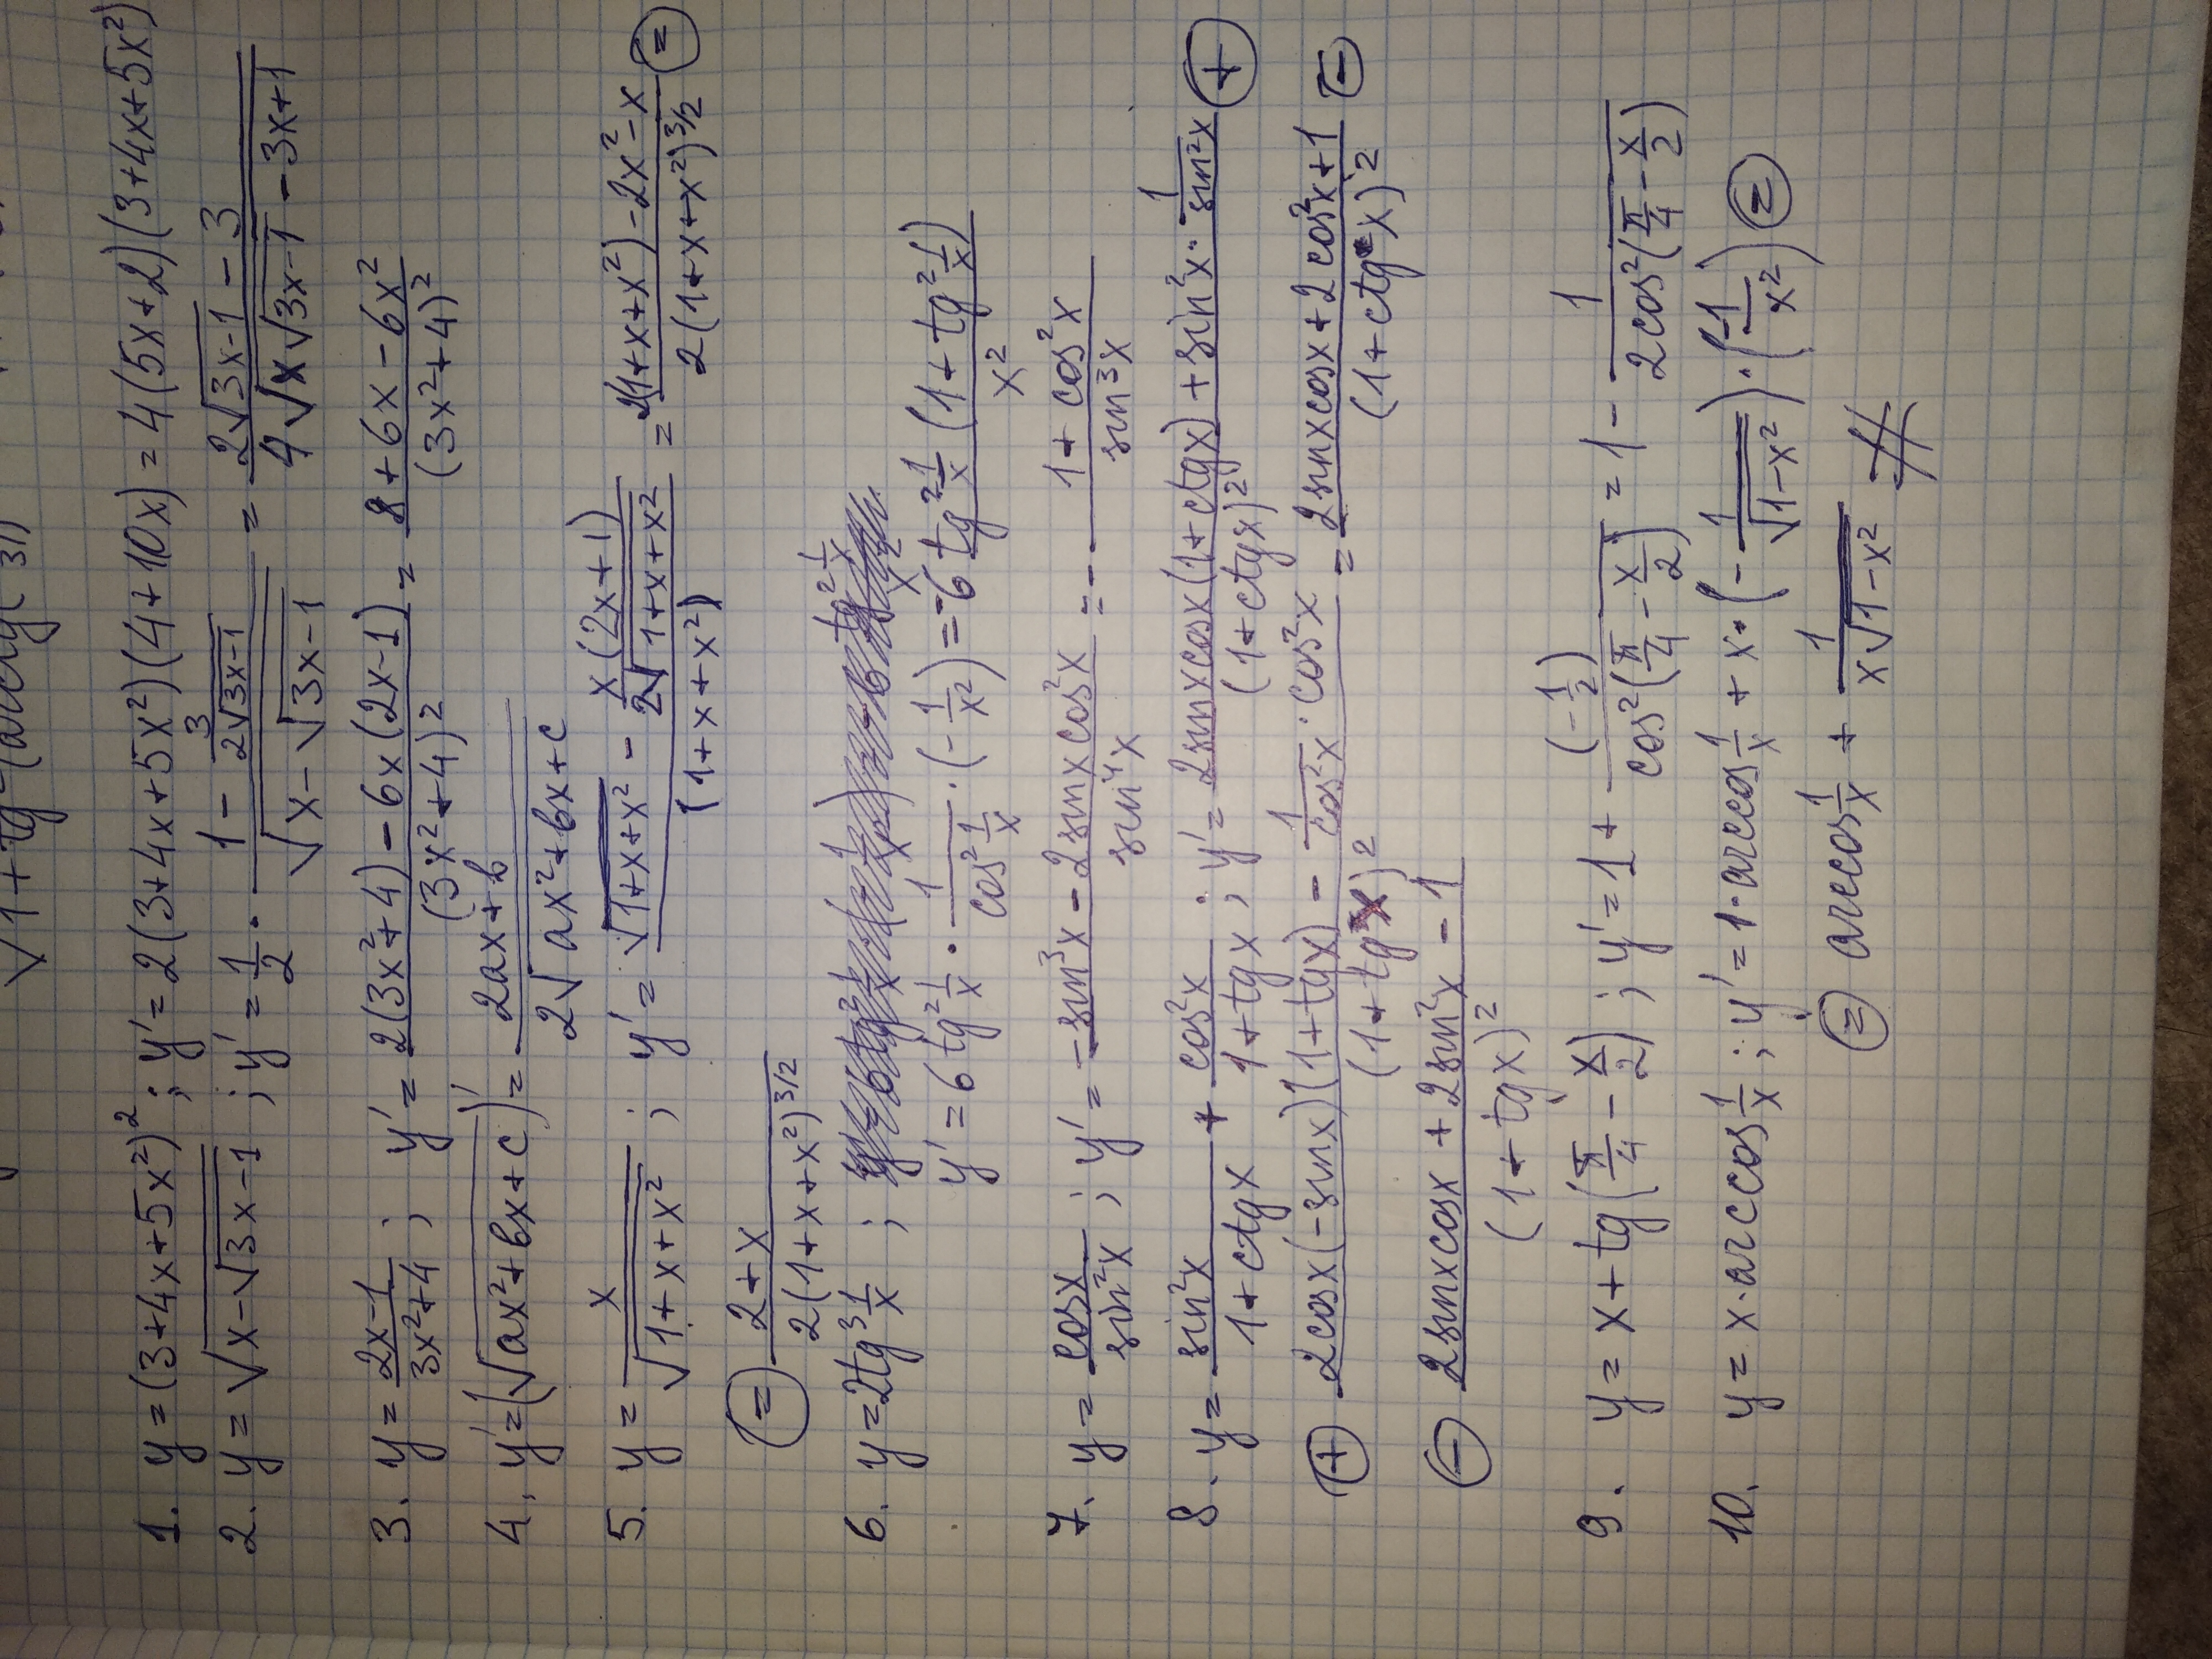 √1+tg (arctg 3))
1. y=(3+4x+5x²)²; y'=2(3+4x+5x²)(4+10x)=4(5x+2)(3+4x+5x²)
2. y=√(x-√(3x-1)); y'=1/2·(1-3/(2√(3x-1)))/√(x-√(3x-1)) = (2√(3x-1)-3)/(4√x√(3x-1)-3x+1)
3. y=(2x-1)/(3x²+4); y'=(2(3x²+4)-6x(2x-1))/(3x²+4)²=(8+6x-6x²)/(3x²+4)²
4. y'=(√(ax²+bx+c))'=(2ax+b)/(2√(ax²+bx+c))
5. y=x/√(1+x+x²); y'=(√(1+x+x²)-x(2x+1)/(2√(1+x+x²)))/(1+x+x²)=(2(1+x+x²)-2x²-x)/(2(1+x+x²)^3/2) ⊜
⊜ (2+x)/(2(1+x+x²)^3/2)
6. y=2tg³ 1/x;
y'=6tg² 1/x · 1/(cos² 1/x)·(-1/x²)=-6 (tg² 1/x (1+tg² 1/x))/x²
7. y=cosx/sin²x; y'=(-sin³x-2sinxcos²x)/sin⁴x=-(1+cos²x)/sin³x
8. y=sin²x/(1+ctgx) + cos²x/(1+tgx); y'=(2sinxcosx(1+ctgx)+sin²x·1/sin²x)/(1+ctgx)² ⊕
⊕ (2cosx(-sinx)(1+tgx)-1/cos²x·cos²x)/(1+tgx)²=(2sinxcosx+2cos²x+1)/(1+ctgx)² ⊖
⊖ (2sinxcosx+2sin²x-1)/(1+tgx)²
9. y=x+tg(π/4-x/2); y'=1+(-1/2)/cos²(π/4-x/2)=1-1/(2cos²(π/4-x/2))
10. y=x·arccos 1/x; y'=1·arccos 1/x+x·(-1/√(1-x²))·(-1/x²) ⊜
⊜ arccos 1/x + 1/(x√(1-x²)) #